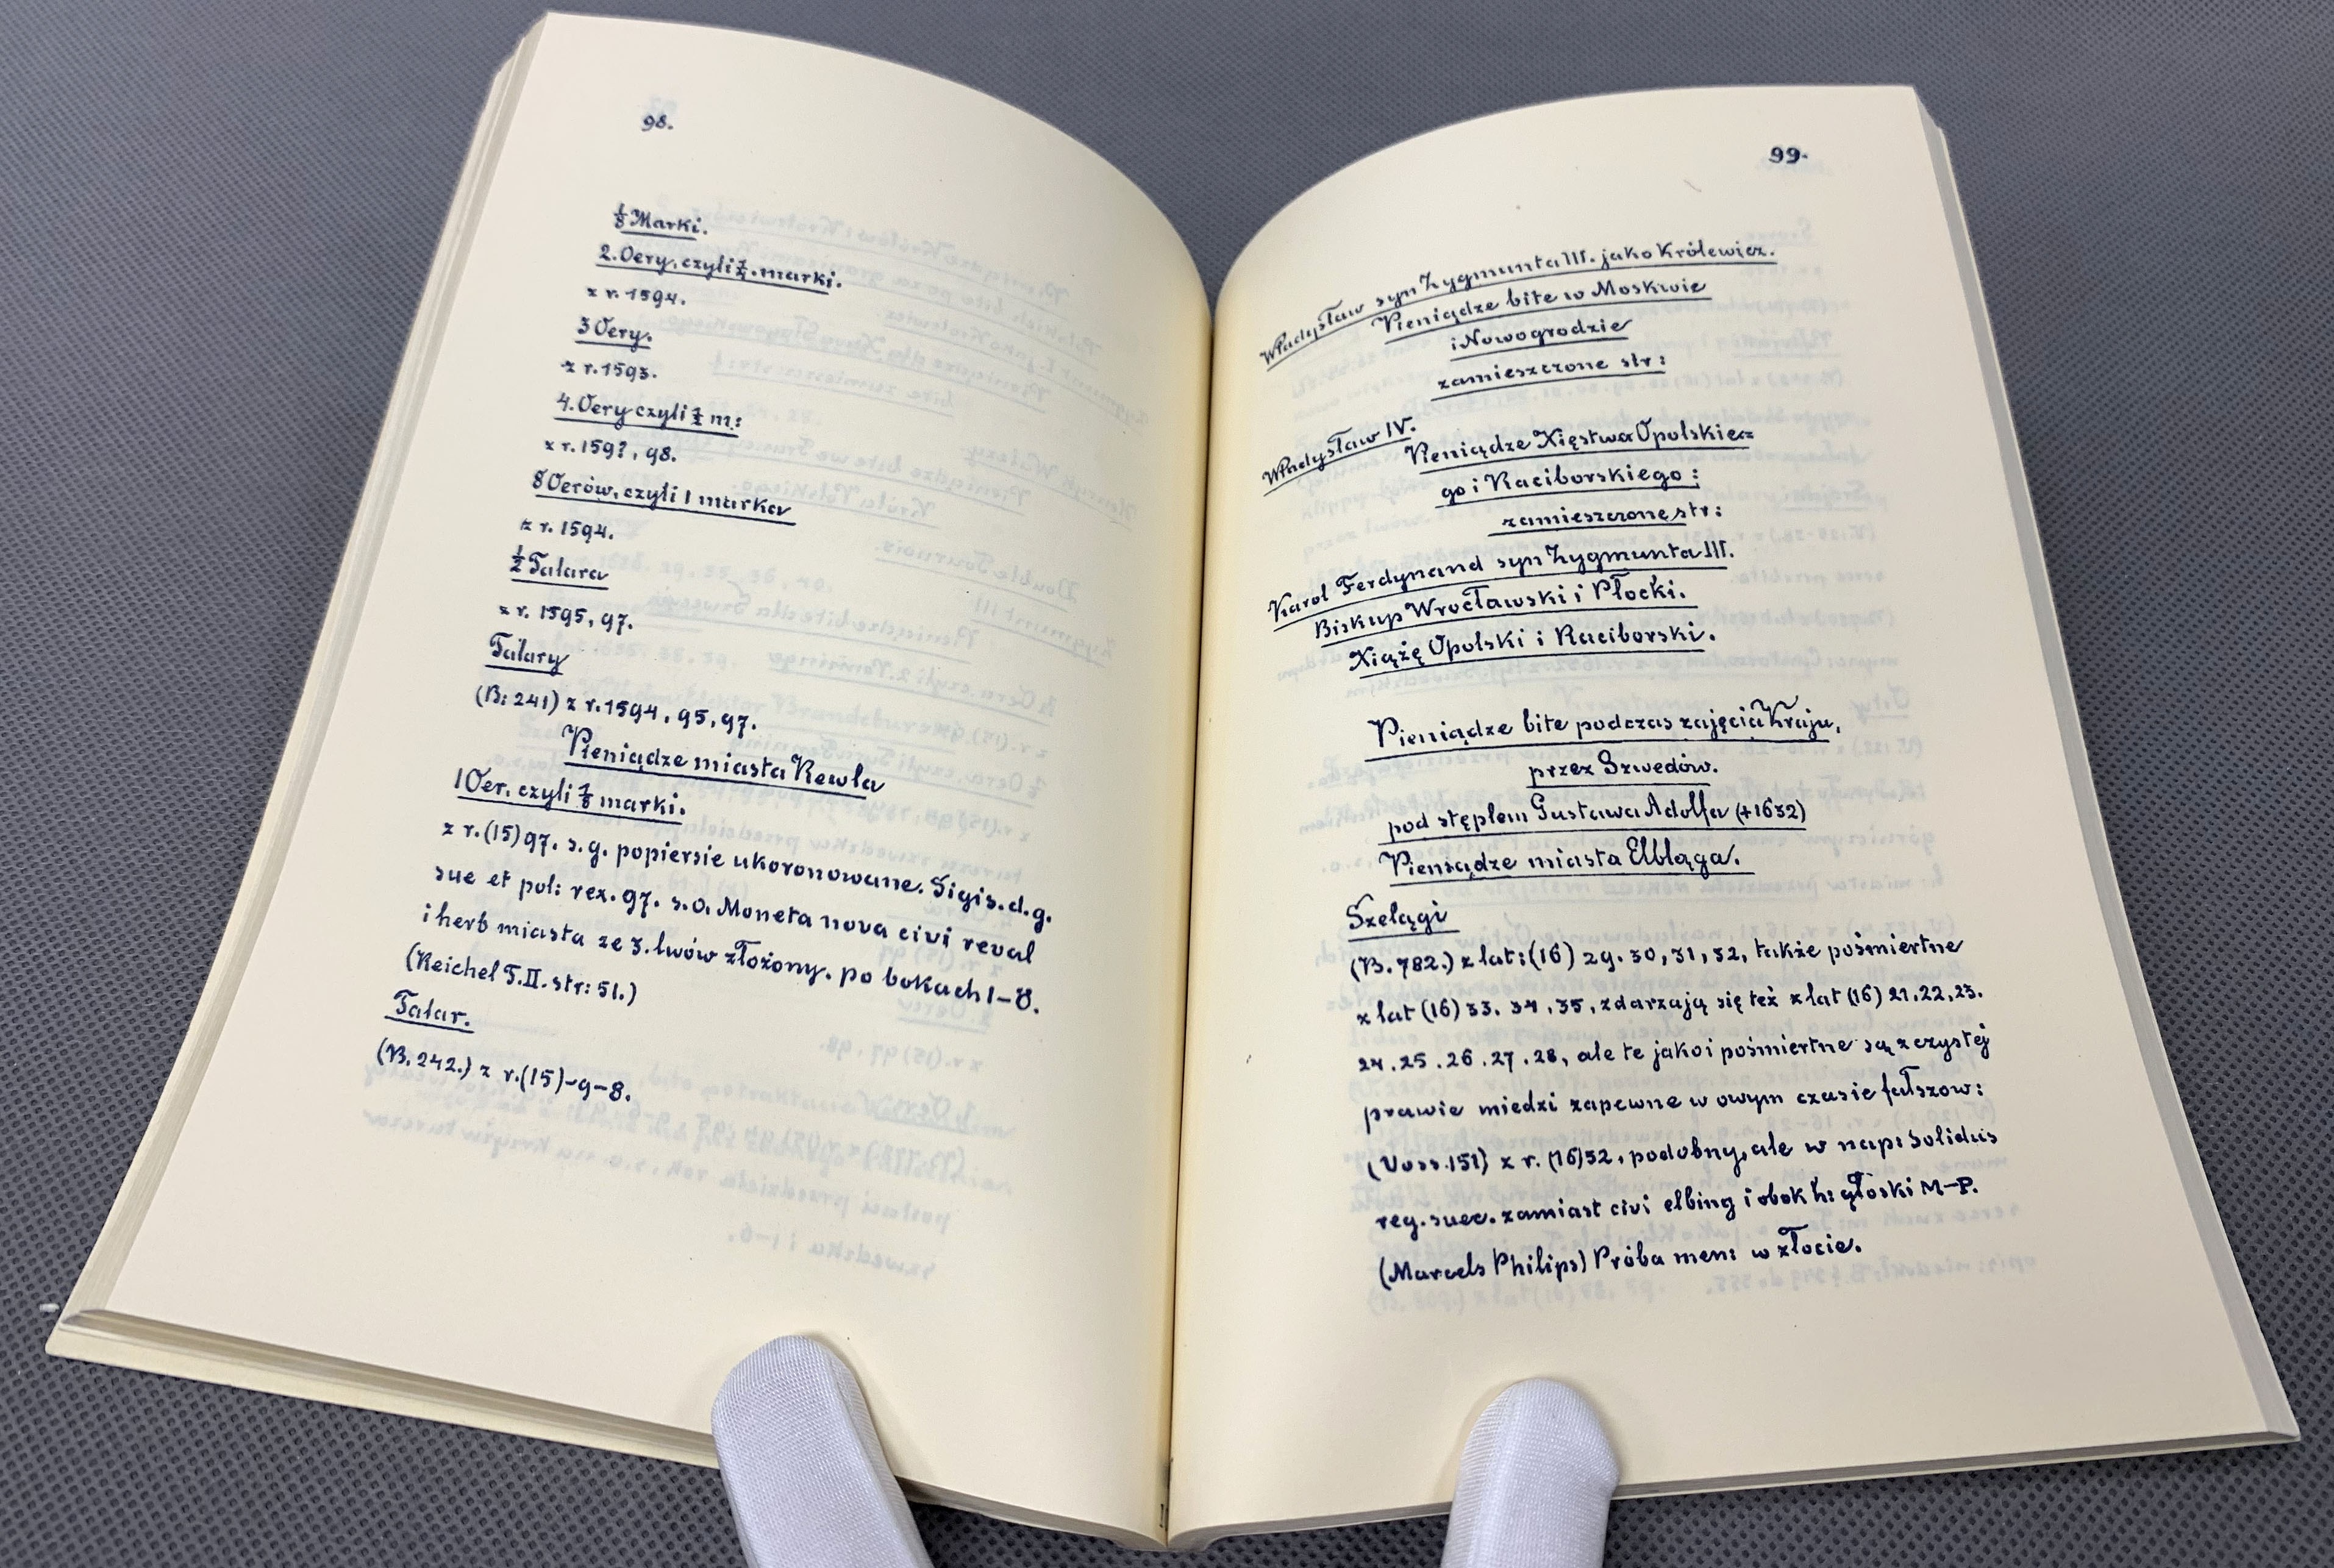 98.
1/8 Marki.
2. Oery, czyli 1/4. marki.
z r. 1594.
3 Oery.
z r. 1593.
4. Oery czyli 1/2 m:
z r. 159?, 98.
8 Oerów, czyli 1 marka
z r. 1594.
1/2 Talara
z r. 1595, 97.
Talary
(B: 241) z r. 1594, 95, 97.
Pieniądze miasta Rewla
1 Oer, czyli 1/8 marki.
z r. (15) 97. s.g. popiersie ukoronowane. Sigis. d. g.
sue et pol: rex. 97. s.o. Moneta nova civi reval
i herb miasta ze 3. lwów złożony. po bokach 1–8.
(Reichel T. II. str: 51.)
Talar.
(B. 242.) z r. (15)–9–8.
99.
Władysław syn Zygmunta III. jako Królewicz.
Pieniądze bite w Moskwie
i Nowogrodzie
zamieszczone str:
Władysław IV.
Pieniądze Xięstwa Opolskie=
go i Raciborskiego:
zamieszczone str:
Karol Ferdynand syn Zygmunta III.
Biskup Wrocławski i Płocki.
Xiążę Opolski i Raciborski.
Pieniądze bite podczas zajęcia Kraju,
przez Szwedów.
pod stęplem Gustawa Adolfa (+1632)
Pieniądze miasta Elbląga.
Szelągi
(B. 782.) z lat: (16) 29. 30, 31, 32, także pośmiertne
z lat (16) 33. 34, 35, zdarzają się też z lat (16) 21, 22, 23.
24. 25. 26. 27. 28, ale te jako i pośmiertne są z czystej
prawie miedzi zapewne w owym czasie fałszow:
(Voss. 151) z r. (16)32, podobny, ale w nap: Solidus
reg. suec. zamiast civi elbing i obok h: głoski M–P.
(Marcels Philips) Próba men: w złocie.